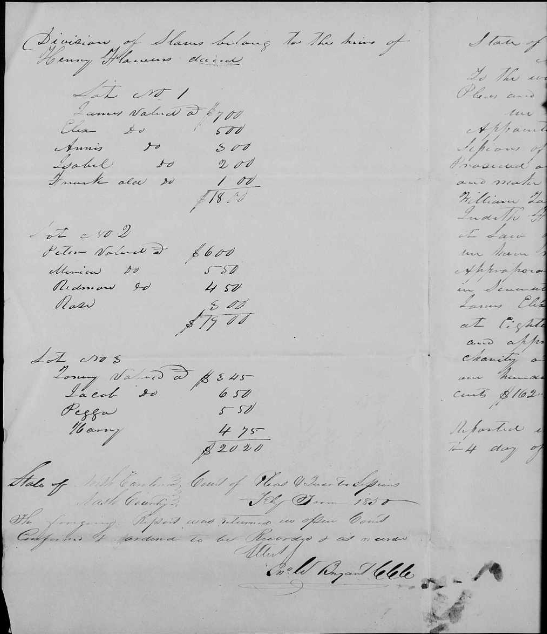 Division of Slaves belong to the heirs of
Henry Flowers decesd
Lot No 1
James Valued at $700
Eliza do 500
Annis do 300
Isabel do 200
Frank old do 100
$1800
Lot No 2
Peter Valued at $600
550
Redmon do 450
Rose 300
$1900
Lot No 3
Toney Valued at $345
Jacob do 650
Peggy 550
Harry 475
$2020
State of North Carolina Court of Pleas & Quarter Sessions
Nash County Feby Term 1850
The foregoing Report was returned in open Court
Confirmed & ordered to be Recorded &
Bryant CCC
State of
To the
Pleas and
we
Appointed
Sessions of
and make
William
Judith
at Law
we have
in
James Eliza
at Eight
and
charity
one hundred
cents $162
Reported
24 day of